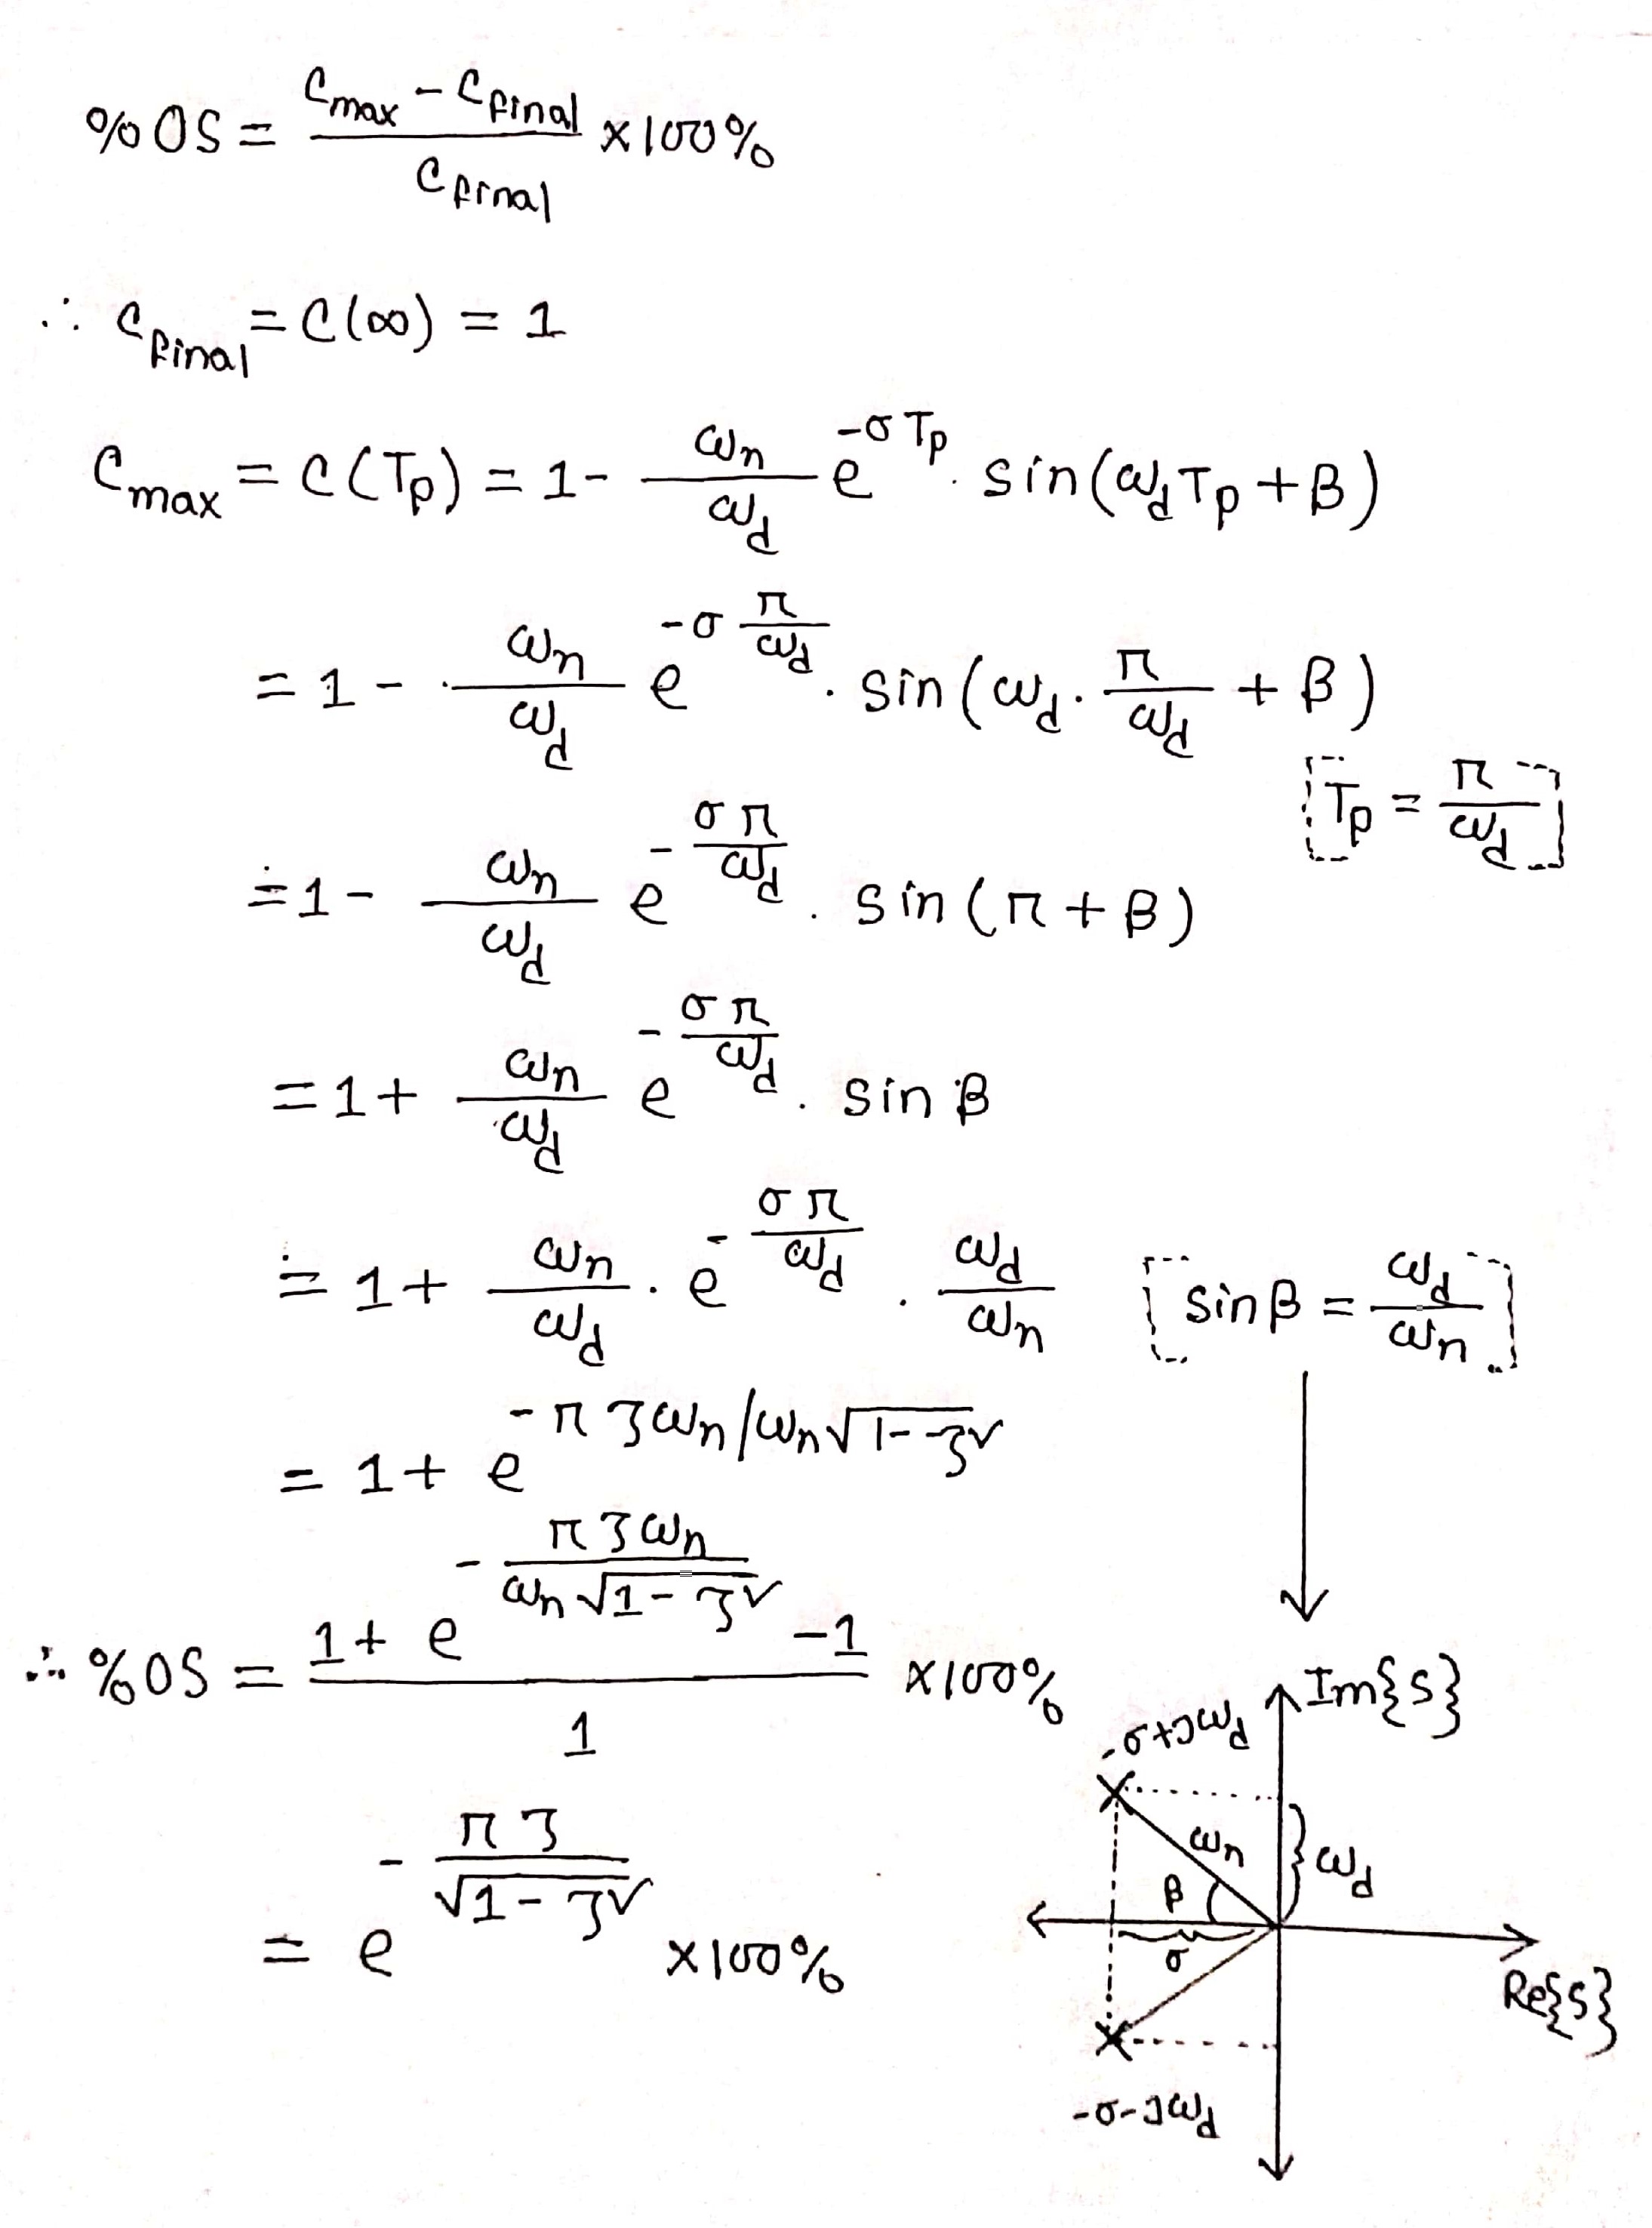 %OS = (C_max - C_final)/C_final × 100%
∴ C_final = C(∞) = 1
C_max = C(T_p) = 1 - (ω_n/ω_d) e^(-σT_p) . sin(ω_d T_p + β)
= 1 - (ω_n/ω_d) e^(-σ π/ω_d) . sin(ω_d . π/ω_d + β)
[T_p = π/ω_d]
= 1 - (ω_n/ω_d) e^(-σπ/ω_d) . sin(π + β)
= 1 + (ω_n/ω_d) e^(-σπ/ω_d) . sin β
= 1 + (ω_n/ω_d) . e^(-σπ/ω_d) . ω_d/ω_n [sinβ = ω_d/ω_n]
= 1 + e^(-πζω_n/ω_n√(1-ζ²))
∴ %OS = (1 + e^(-πζω_n/(ω_n√(1-ζ²))) - 1)/1 × 100%
= e^(-πζ/√(1-ζ²)) × 100%
Im{S}
-σ+jω_d
ω_n
ω_d
β
σ
Re{S}
-σ-jω_d